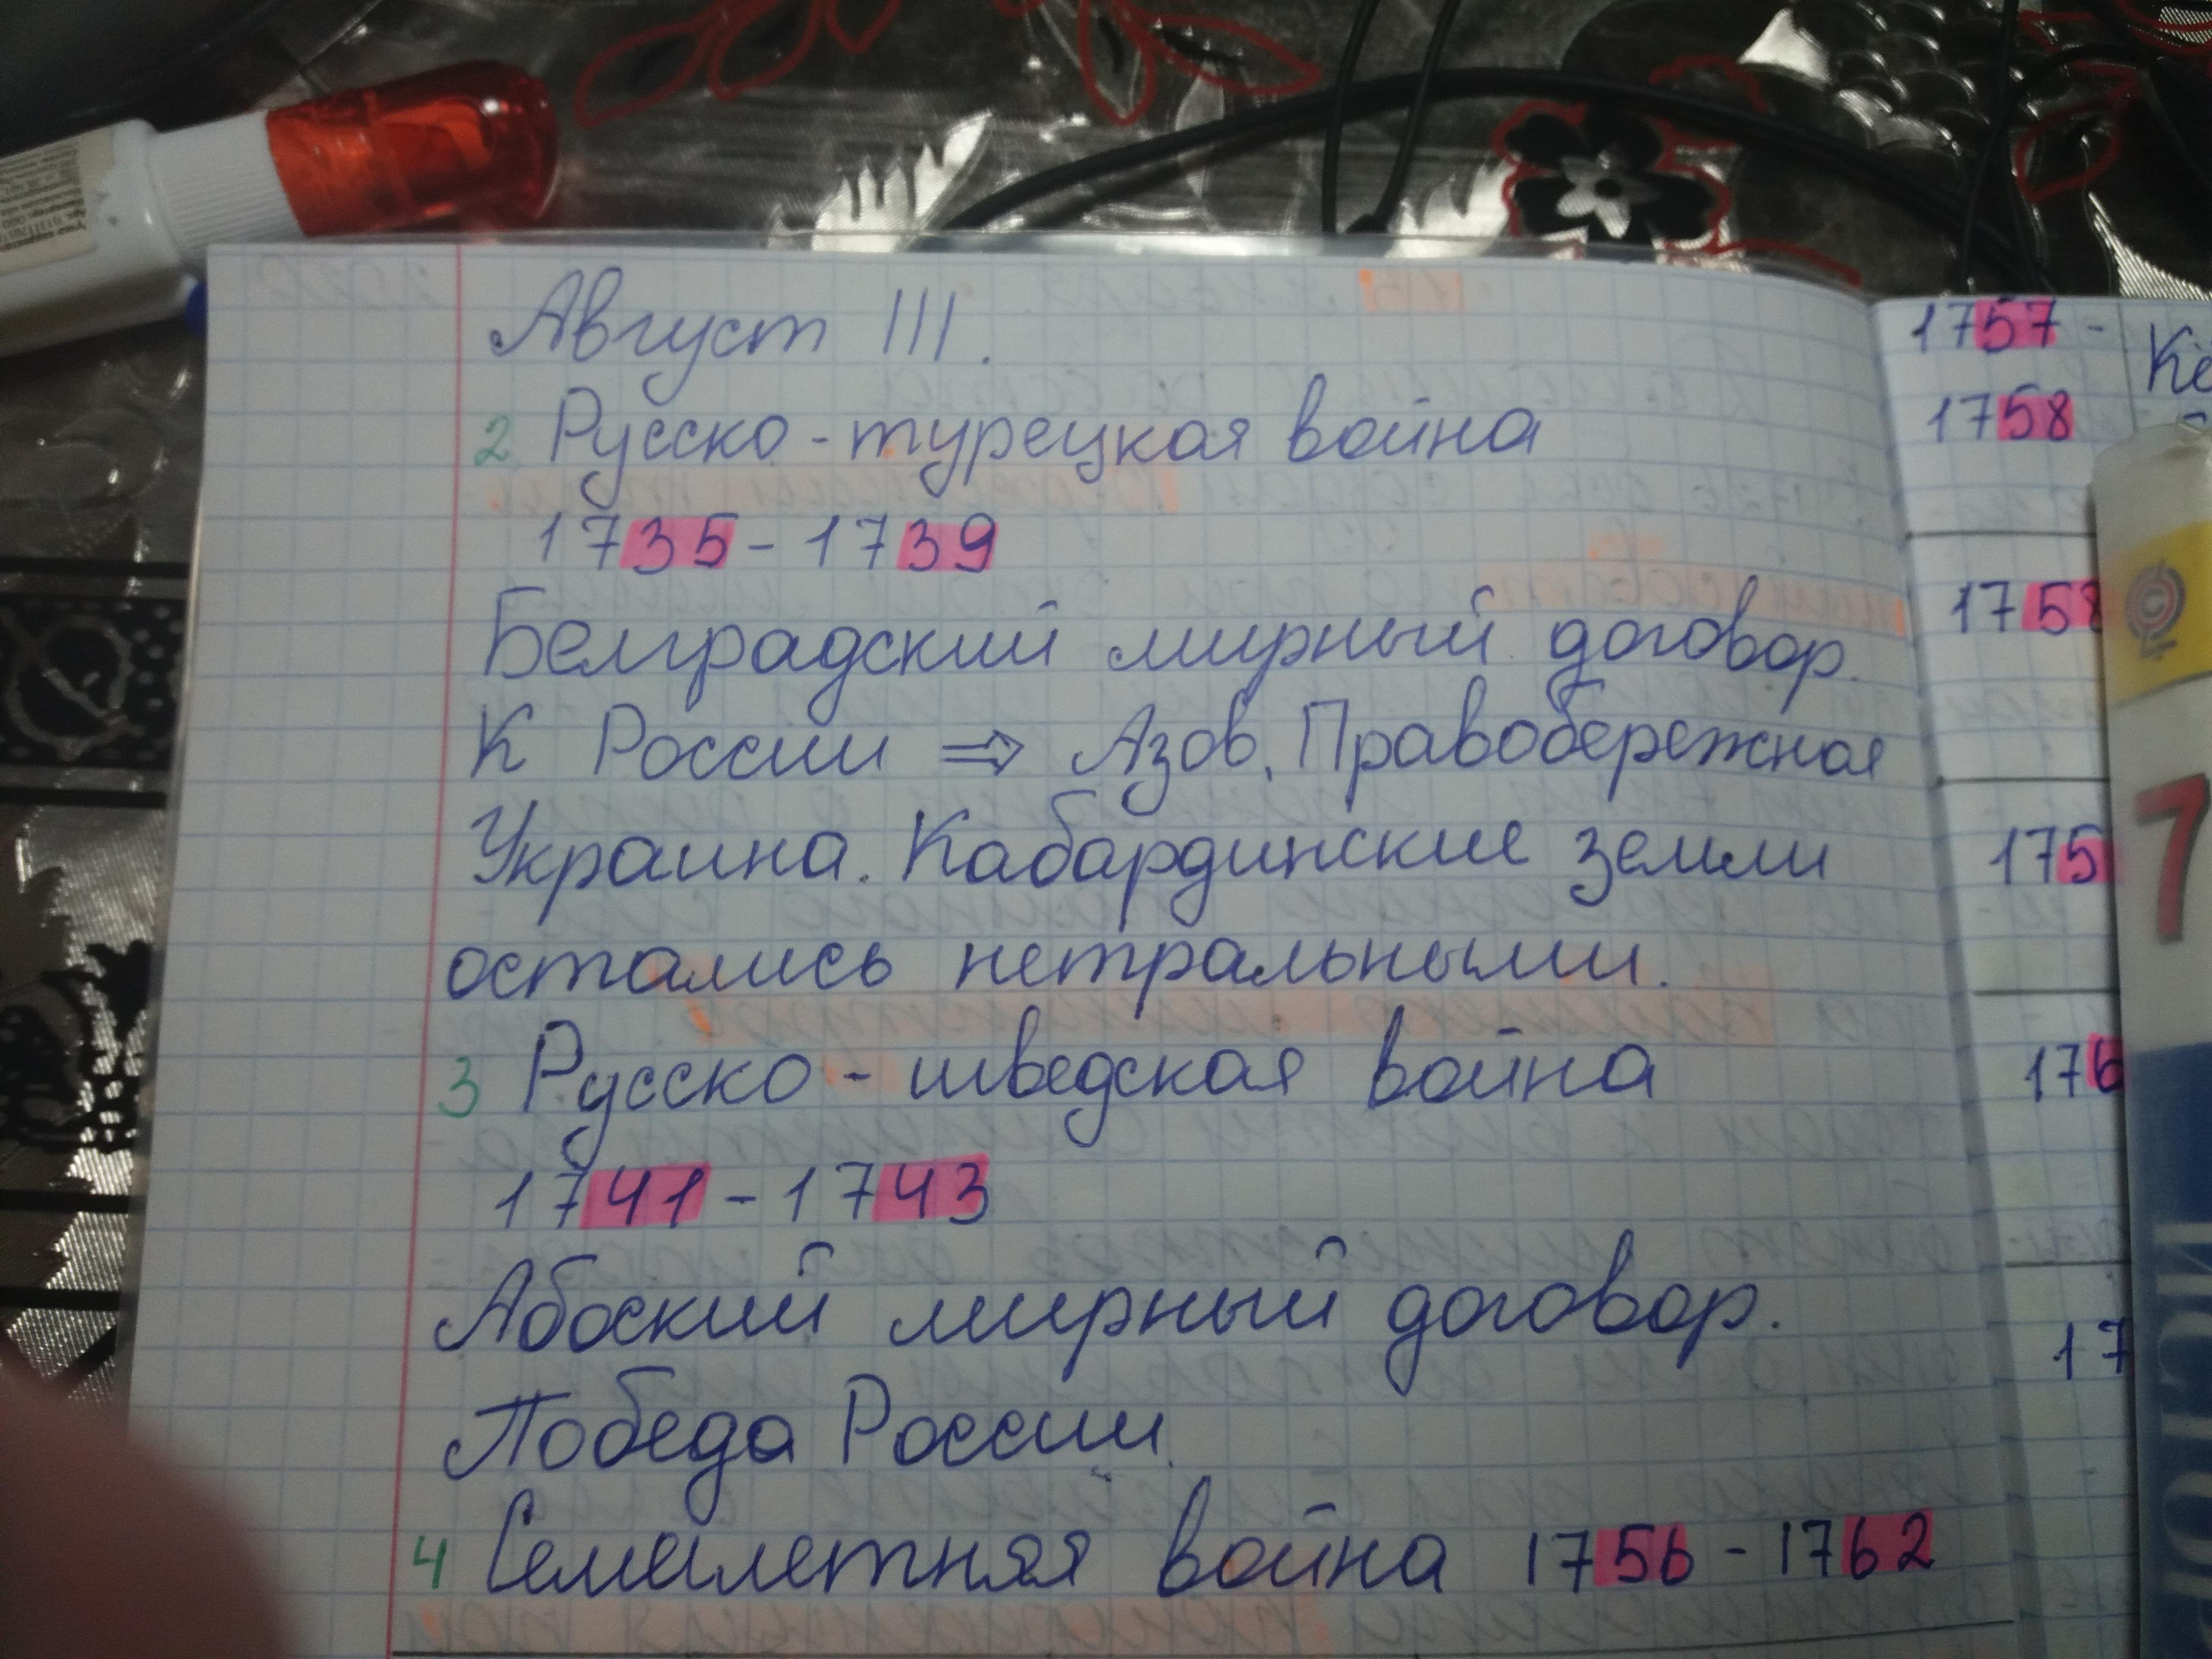 Август III.
2 Русско-турецкая война
1735-1739
Белградский мирный договор.
К России ⇒ Азов, Правобережная
Украина. Кабардинские земли
остались нетральными.
3 Русско-шведская война
1741-1743
Абоский мирный договор.
Победа России.
4 Семилетняя война 1756-1762
1757-
1758
175
176
17
7